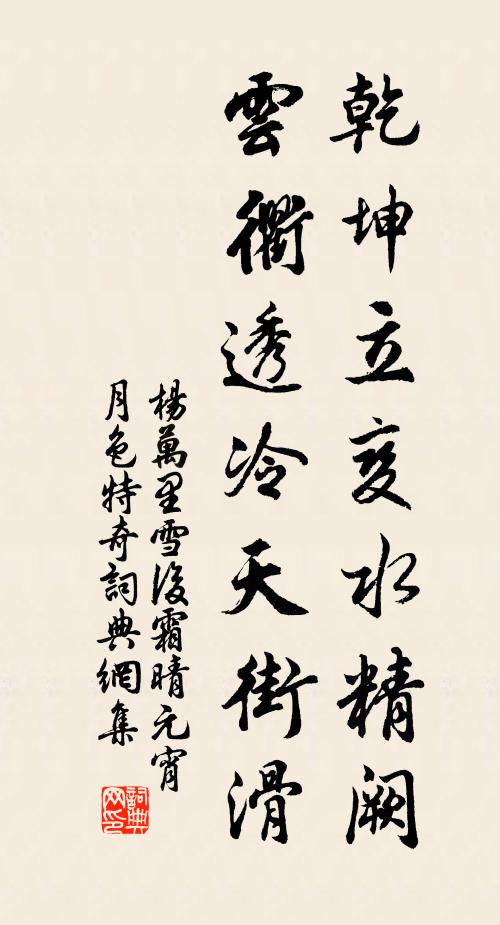 乾坤立变水精阙
雲衢透冷天街滑
楊萬里雪後霜晴元宵
月色特奇詞典網集
詞典
网印